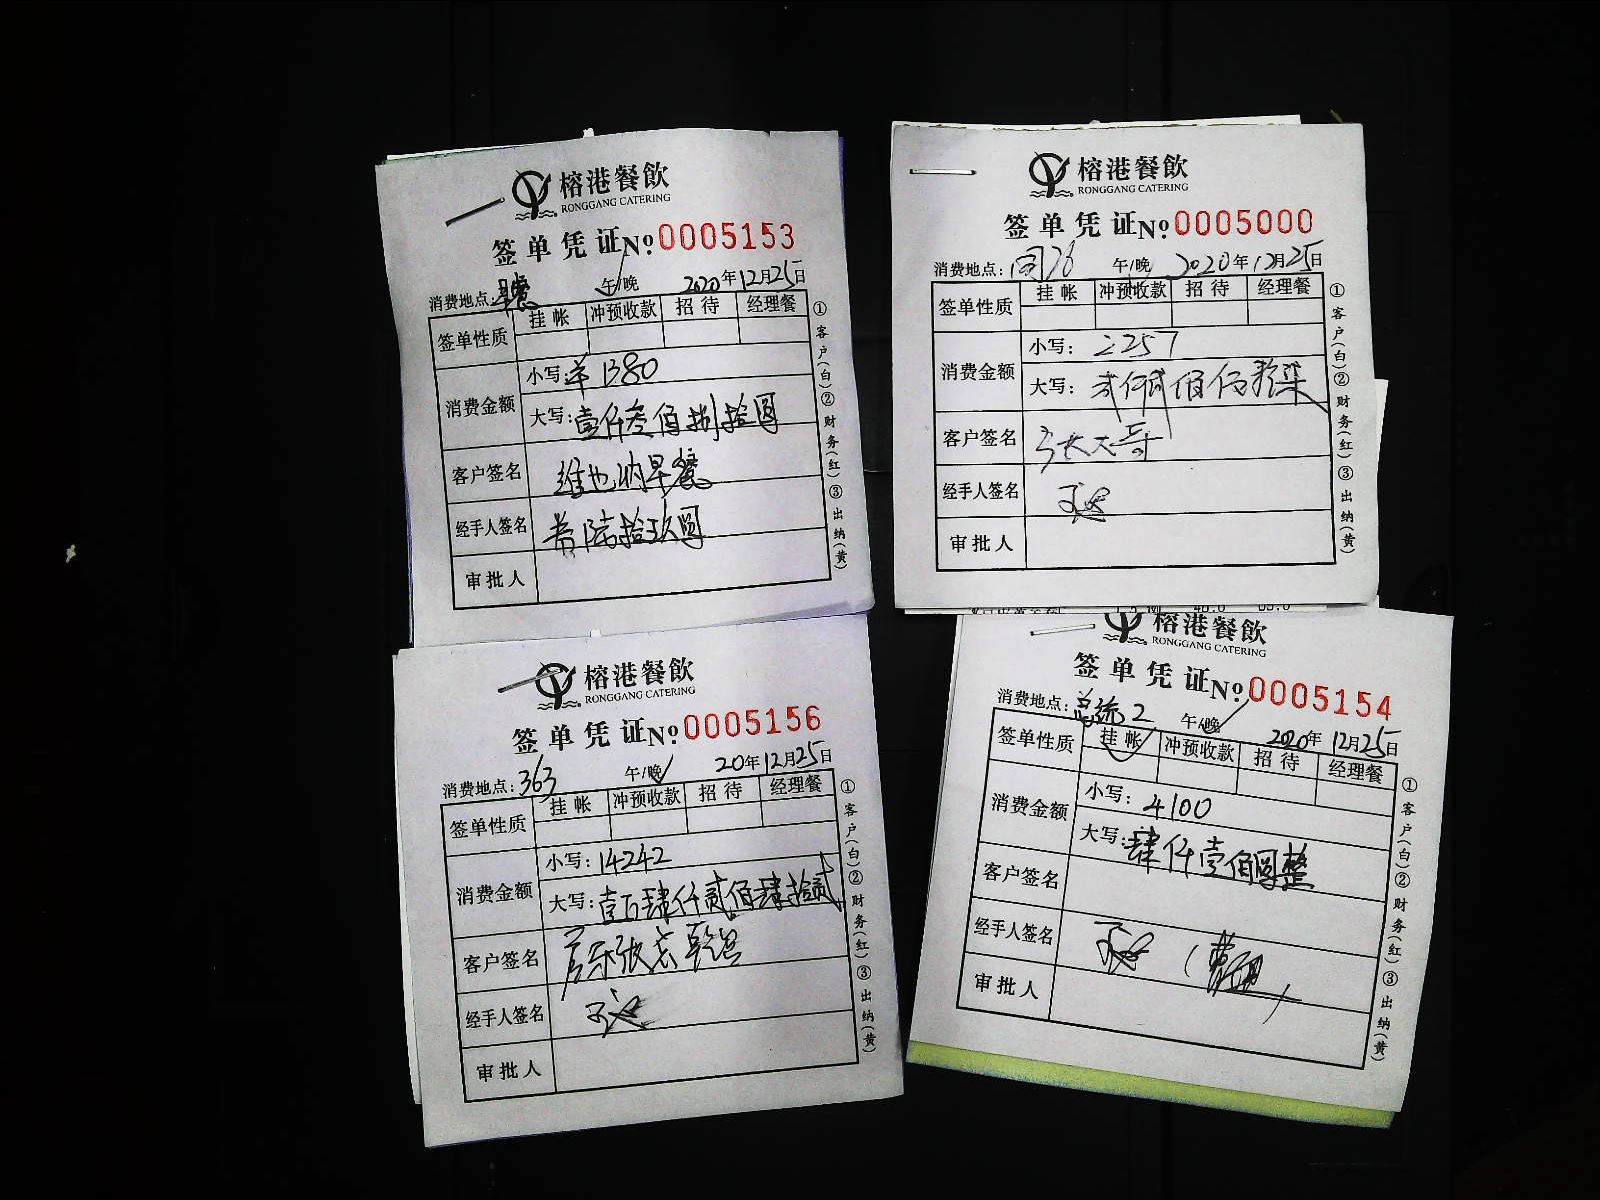 榕港餐飲
RONGGANG CATERING
签单凭证 №.0005153
消费地点:早餐 午/晚 2020年12月25日
签单性质 挂帐 冲预收款 招待 经理餐
消费金额 小写: 1380
大写:壹仟叁佰捌拾圆
客户签名 维也纳早餐
经手人签名 陆拾玖圆
审批人
①客户(白)②财务(红)③出纳(黄)
榕港餐飲
RONGGANG CATERING
签单凭证 №.0005000
消费地点: 午/晚 2020年12月25日
签单性质 挂帐 冲预收款 招待 经理餐
消费金额 小写: 2257
大写: 贰仟贰佰伍拾柒
客户签名 张大哥
经手人签名
审批人
①客户(白)②财务(红)③出纳(黄)
榕港餐飲
RONGGANG CATERING
签单凭证 №.0005156
消费地点:363 午/晚 2020年12月25日
签单性质 挂帐 冲预收款 招待 经理餐
消费金额 小写:14242
大写:壹万肆仟贰佰肆拾贰
客户签名
经手人签名
审批人
①客户(白)②财务(红)③出纳(黄)
榕港餐飲
RONGGANG CATERING
签单凭证 №.0005154
消费地点:总统2 午/晚 2020年12月25日
签单性质 挂帐 冲预收款 招待 经理餐
消费金额 小写: 4100
大写:肆仟壹佰圆整
客户签名
经手人签名
审批人
①客户(白)②财务(红)③出纳(黄)